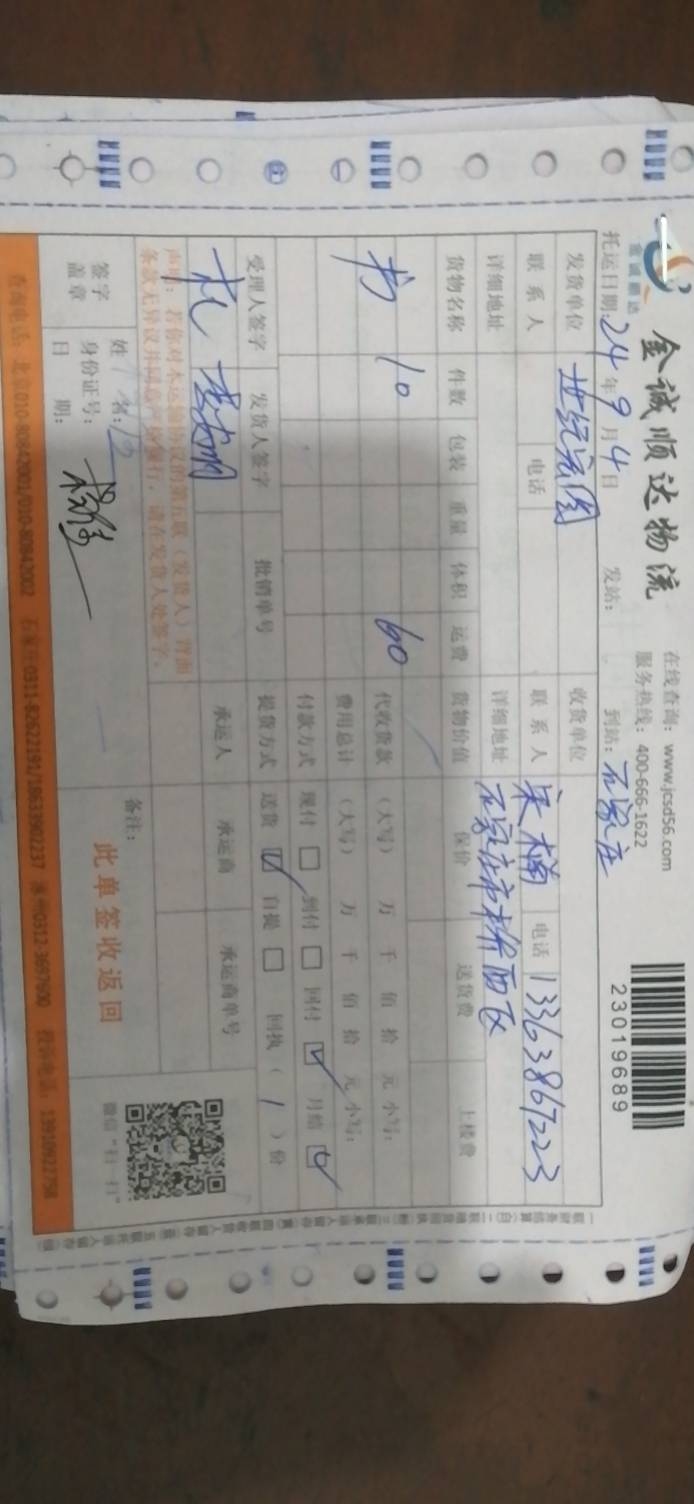 金诚顺达
金诚顺达物流
在线查询：www.jcsd56.com
服务热线：400-666-1622
23019689
托运日期：24年9月4日 发站： 到站：石家庄
发货单位 世纪宏图 收货单位
联系人 电话 联系人 宋楠 电话 13363867223
详细地址 详细地址 石家庄市桥西区
货物名称 件数 包装 重量 体积 运费 货物价值 保价 送货费 上楼费
书 10 60 代收货款 （大写） 万 千 佰 拾 元 小写：
费用总计 （大写） 万 千 佰 拾 元 小写：
付款方式 现付 到付 回付 月结
受理人签字 发货人签字 批销单号 提货方式 送货 自提 回执（1）份
承运人 承运商 承运商单号
声明：若你对本运输协议的第五联（发货人）背面
条款无异议并同意严格履行，请在发货人处签字。
签字
盖章
姓名：
身份证号：
日期：
备注：
此单签收返回
微信“扫一扫”
查询电话：北京010-80842001/010-80842002 石家庄0311-82622191/18633902237 涿州0312 3697600 投诉电话：13910922758